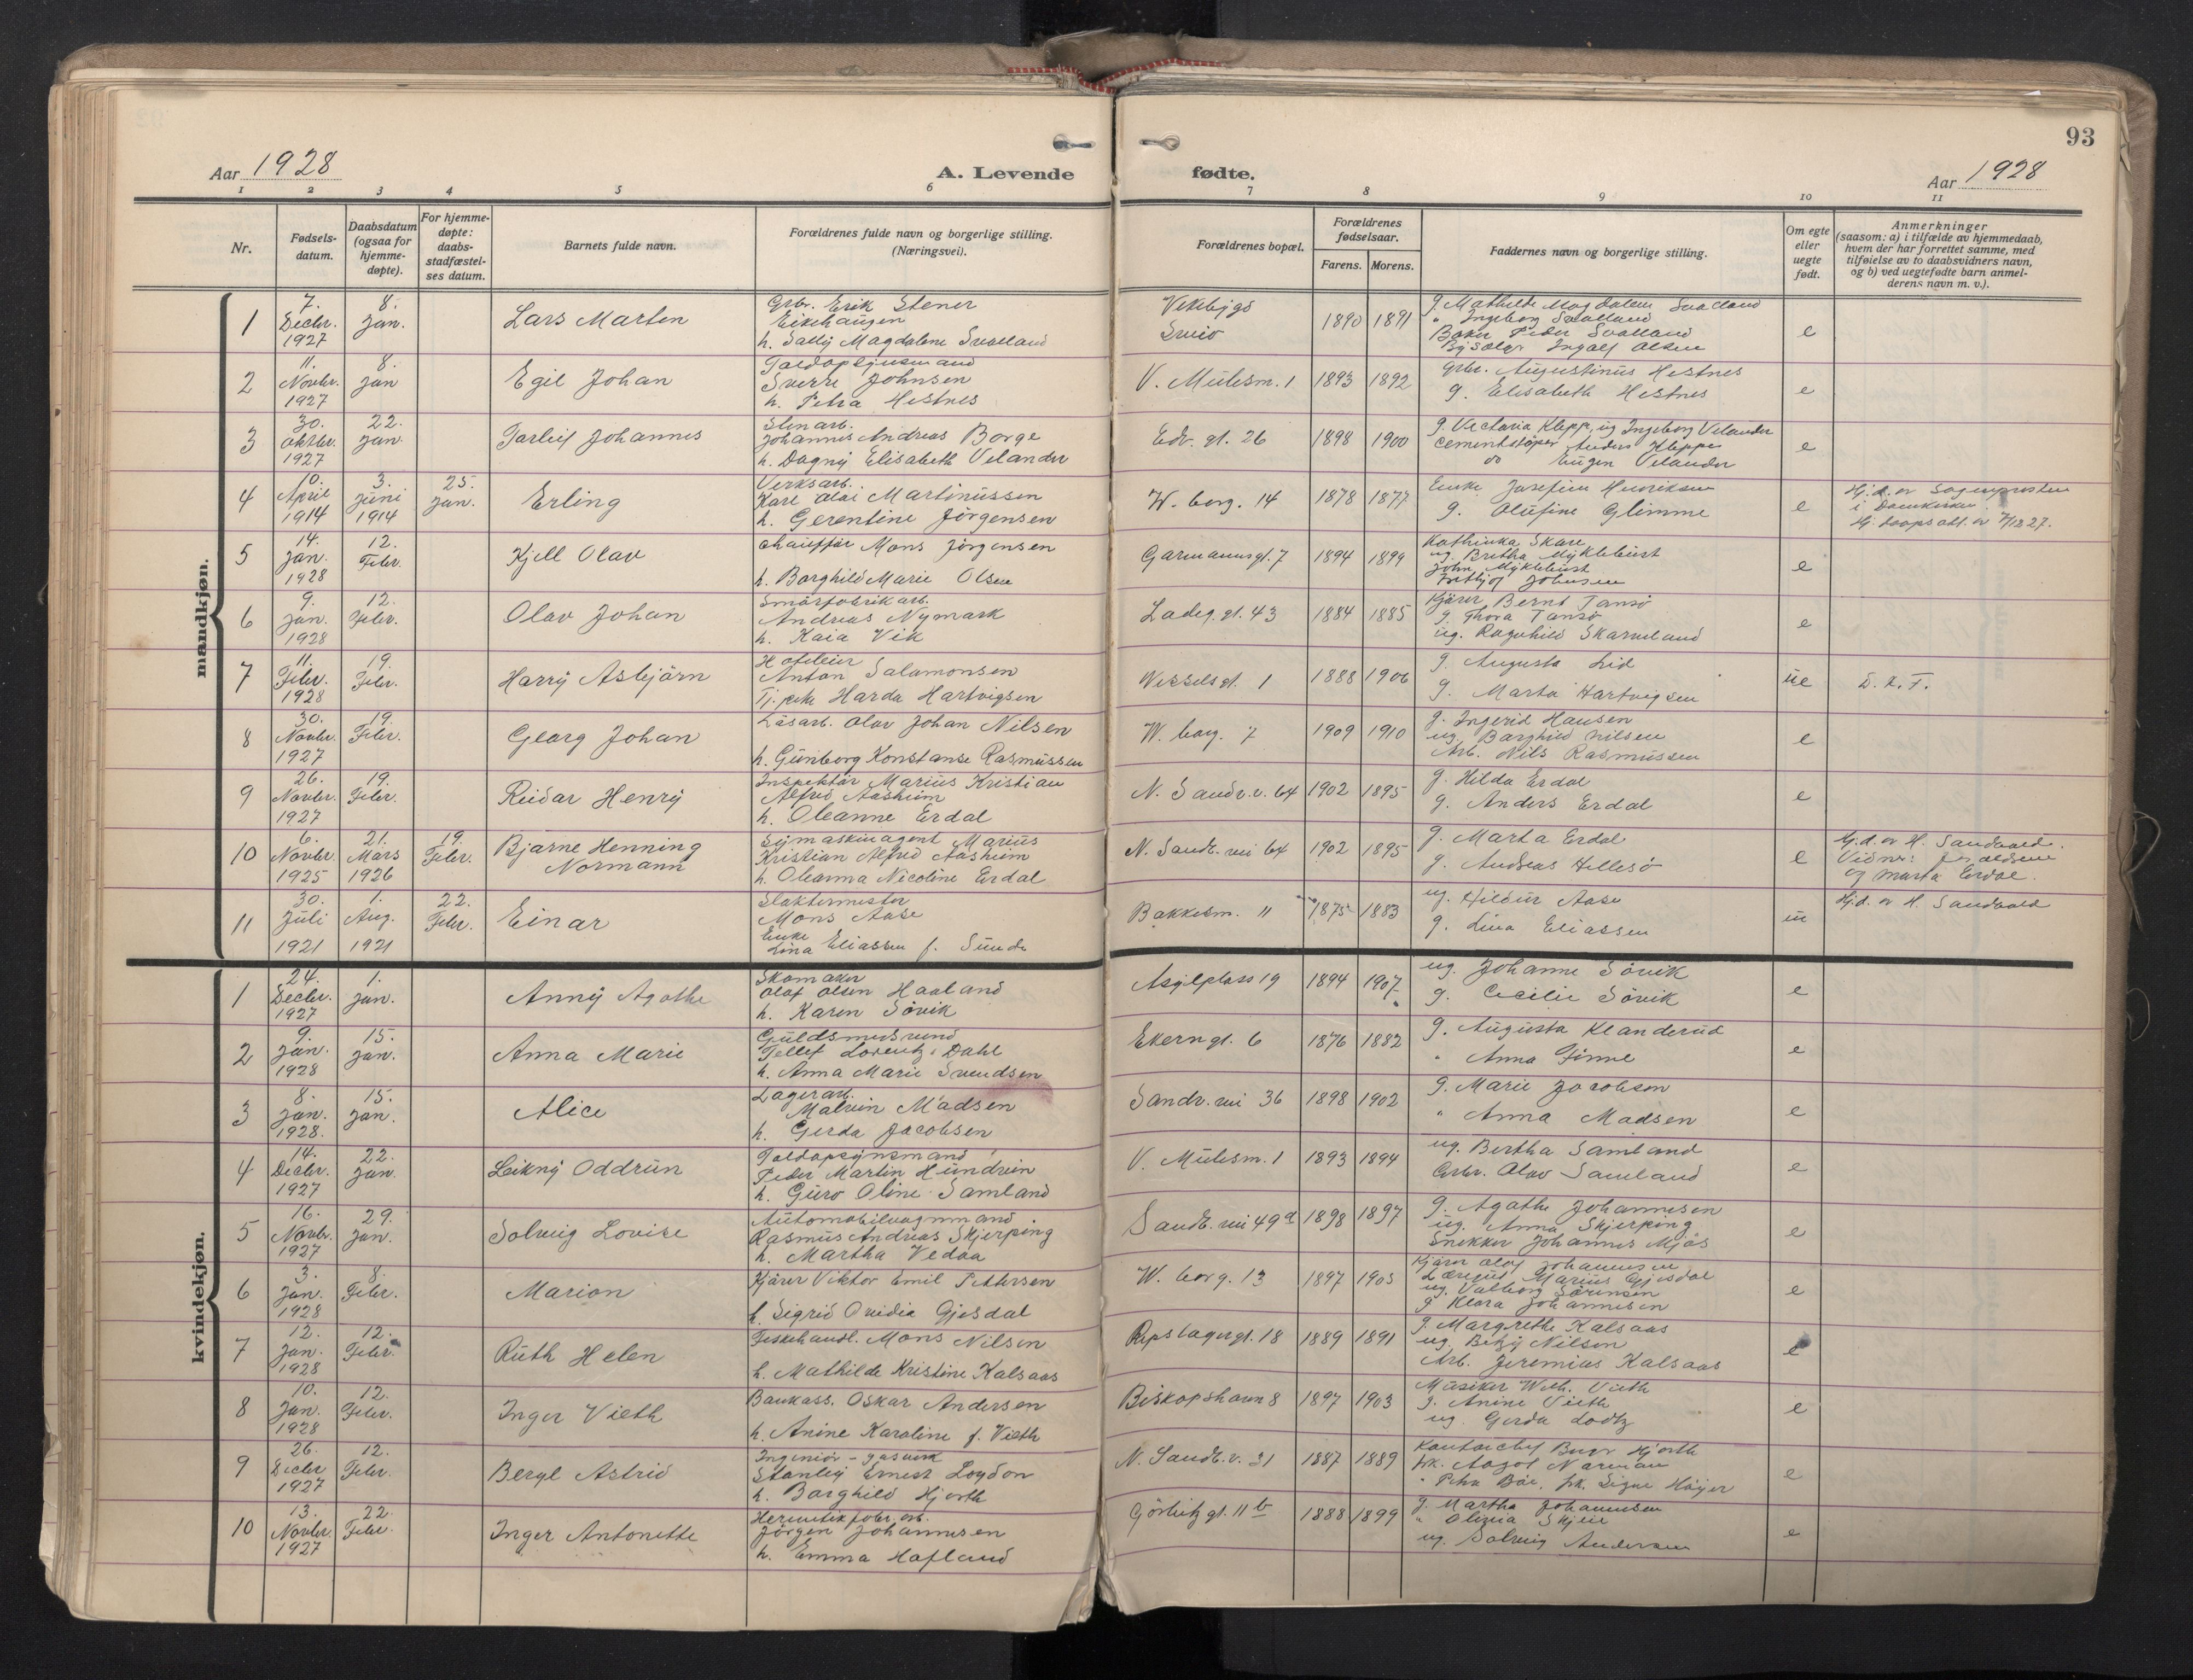 93
Aar 1928
A. Levende
fødte.
Aar 1928
1 2 3 4 5 6 7 8 9 10 11
Nr.
Fødsels-
datum.
Daabsdatum
(ogsaa for
hjemme-
døpte).
For hjemme-
døpte:
daabs-
stadfæstel-
ses datum.
Barnets fulde navn.
Forældrenes fulde navn og borgerlige stilling.
(Næringsvei).
Forældrenes bopæl.
Forældrenes
fødselsaar.
Farens. Morens.
Faddernes navn og borgerlige stilling.
Om egte
eller
uegte
født.
Anmerkninger
(saasom: a) i tilfælde av hjemmedaab,
hvem der har forrettet samme, med
tilføielse av to daabsvidners navn,
og b) ved uegtefødte barn anmel-
derens navn m. v.).
mandkjøn.
1
7.
Decbr.
1927
8.
Jan.
Lars Marten
Grbr. Erik Stener
Eikehaugen
h. Sally Magdalene Svalland
1890 1891
g. Mathilde Magdalene Svalland
" Ingeborg Svalland
Baker Peder Svalland
Ingolf Olsen
e
2
11.
Novbr.
1927
8.
Jan
Egil Johan
Toldopsynsmand
Sverre Johnsen
h. Petra Hestnes
V. Mulesm. 1
1893 1892
Grbr. Augustinus Hestnes
g. Elisabeth Hestnes
e
3
30.
Oktbr.
1927
22.
Jan.
Torleif Johannes
Stenarb.
Johannes Andreas Borge
h. Dagny Elisabeth Velander
Edv. gt. 26
1898 1900
g. Victoria Kleppe, ug Ingeborg Velander
Cementstøper Anders Kleppe
do Eugen Velander
e
4
10.
April
1914
3.
Juni
1914
25.
Jan.
Erling
Verksarb.
Karl Olai Martinussen
h. Gerentine Jörgensen
W. borg. 14
1878 1877
Enke Josefine Henriksen
g. Olufine Glimme
e
Hj.d. av Sogneprosten
i Domkirken
5
14.
Jan.
1928
12.
Febr.
Kjell Olav
Chauffør Mons Jörgensen
h. Borghild Marie Olsen
Garmannsgt. 7
1894 1899
Kathinka Skare
ug. Bertha Myklebust
John Myklebust
Fritjof Johnsen
e
6
9.
Jan.
1928
12.
Febr.
Olav Johan
Smörfabrikarb.
Andreas Nymark
h. Kaia Vik
Ladeg. gt. 43
1884 1885
Kjörer Bernt Tansö
g. Thora Tansö
ug. Ragnhild Skarmeland
e
7
11.
Febr.
1928
19.
Febr.
Harry Asbjörn
Anton Salamonsen
Tj. pike Harda Hartvigsen
Wesselsgt. 1
1888 1906
g. Augusta Lid
g. Marta Hartvigsen
ue
8
30.
Novbr.
1927
19.
Febr.
Georg Johan
Løsarb. Olav Johan Nilsen
h. Gunborg Konstanse Rasmussen
W. borg. 7
1909 1910
g. Ingerid Hansen
ug. Borghild Nilsen
Arb. Nils Rasmussen
e
9
26.
Novbr.
1927
19.
Febr.
Reidar Henry
Inspektör Marius Kristian
Alfred Aasheim
h. Oleanne Erdal
N. Sandv. v. 64
1902 1895
g. Hilda Erdal
g. Anders Erdal
e
10
6.
Novbr.
1925
21.
Mars
1926
19.
Febr.
Bjarne Henning
Normann
Symaskinagent Marius
Kristian Alfred Aasheim
h. Oleanna Nicoline Erdal
N. Sandv. vei 64
1902 1895
g. Marta Erdal
g. Andreas Hellesö
e
Hj.d. av H. Sandvold.
og Marta Erdal.
11
30.
Juli
1921
1.
Aug.
1921
22.
Febr.
Einar
Slaktermester
Mons Aase
Enke
Lina Eliassen f. Sunde
Bakkesm. 11
1875 1883
ug. Hildur Aase
g. Lina Eliassen
u
Hj.d. av H. Sandvold
kvindekjøn.
1
24.
Decbr.
1927
1.
Jan.
Anny Agathe
Skomaker
Olaf Olsen Haaland
h. Karen Sövik
Asylplass 19
1894 1907
ug. Johanne Sövik
g. Cecilie Sövik
e
2
9.
Jan.
1928
15.
Jan.
Anna Marie
Guldsmedsvend
Tellef Lorentz Dahl
h. Anna Marie Svendsen
Ekerngt. 6
1876 1882
g. Augusta Klanderud
" Anna Finne
e
3
8.
Jan.
1928.
15.
Jan.
Alice
Lagerarb.
Malvin Madsen
h. Gerda Jacobsen
Sandv. vei 36
1898 1902
g. Marie Jacobsen
" Anna Madsen
e
4
14.
Decbr.
1927
22.
Jan.
Leikny Oddrun
Toldopsynsmand
Peder Martin Hundvin
h. Guro Oline Samland
V. Mulesm. 1
1893 1894
ug. Bertha Samland
Grbr. Olav Samland
e
5
16.
Novbr.
1927
29.
Jan.
Solveig Lovise
Automobilvognmand
Rasmus Andreas Skjerping
h. Martha Vedaa
Sandv. vei 49a
1898 1897
g. Agathe Johannesen
ug. Anna Skjerping
Snekker Johannes Mjös
e
6
3.
Jan.
1928
8.
Febr.
Marion
Kjörer Viktor Emil Pettersen
h. Sigrid Ovidia Gjesdal
W. borg. 13
1897 1905
Kjörer Olaf Johannesen
Marius Gjesdal
ug. Valborg Sörensen
g Klara Johannesen
e
7
12.
Jan.
1928
12.
Febr.
Ruth Helen
Fiskehandl. Mons Nilsen
h. Mathilde Kristine Kalsaas
Repslagergt. 18
1889 1891
g. Margrethe Kalsaas
ug. Betzy Nilsen
Arb. Jeremias Kalsaas
e
8
10.
Jan.
1928
12.
Febr.
Inger Vieth
Bankass. Oskar Andersen
h. Anine Karoline f. Vieth
Biskopshavn 8
1897 1903
Musiker Wilh. Vieth
g. Anine Vieth
ug. Gerda Lodtz
e
9
26.
Decbr
1927
12.
Febr.
Beryl Astrid
Ingeniör - gasverk
Stanley Ernest Loydon
h. Borghild Hjorth
N. Sandv. v. 31
1887 1889
Kontorchef Hjorth
frk. Aagot Norman
" Petra Böe, frk. Signe Höyer
e
10
13.
Novbr.
1927
22.
Febr.
Inger Antonette
Hermetikfabr. arb.
Jörgen Johannesen
h. Emma Hafland
Görbitzgt. 11 b
1888 1899
g. Martha Johannesen
" Olivia Skjeie
ug. Solveig Andersen
e